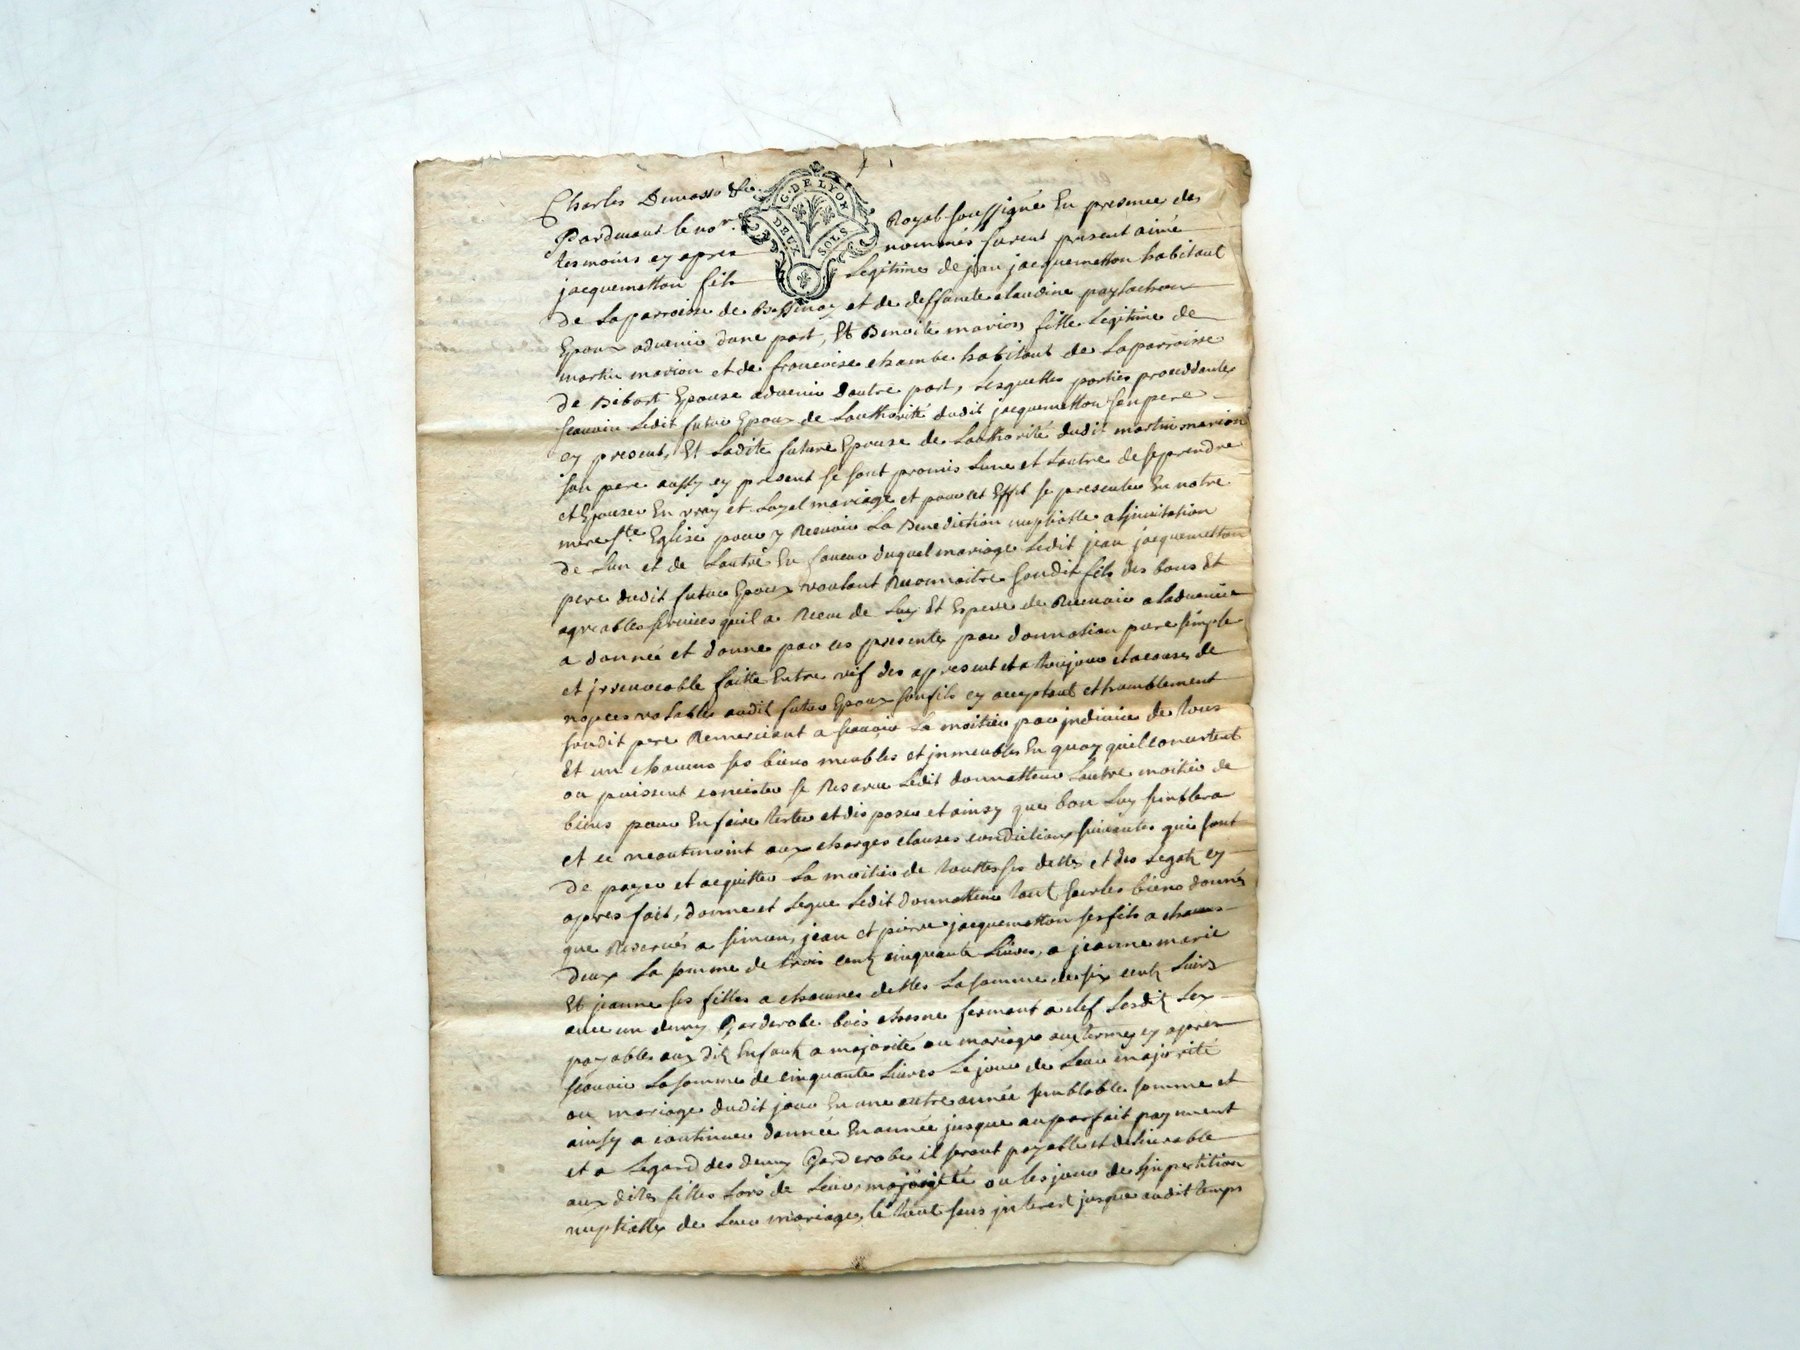 Charles Demasso &c.
G. DE LYON
DEUX SOLS
Pardevant le no.re Royal soussigné En presence des
tesmoins cy apres nommés furent present aimé
jacquemetton fils Legitime de jean jacquemetton habitant
de La parroisse de Bessenay et de deffuncte claudine
Epoux advenir dune part, Et Benoite marion fille Legitime de
martin marion et de francoise chambe habitant de La parroisse
de Bibost Epouse advenir dautre part, Lesquelles parties proceddantes
scavoir Ledit futur Epoux de Lauthorité dudit jacquemetton son pere
cy present, Et Ladite future Epouse de Lauthorité dudit martin marion
son pere aussy cy present se sont promis Lune et Lautre de se prendre
et Epouser En vray et Loyal mariage et pour cet Effet se presenter En notre
mere Ste Eglise pour y Recevoir La Benediction nuptialle a Linvitation
de Lun et de Lautre En faveur duquel mariage Ledit jean jacquemetton
pere dudit futur Epoux voulant Reconnoitre sondit fils des bons Et
agreables services quil a Receu de Luy Et Espere de Recevoir a Ladvenir
a donné et donne par ces presentes par donnation pure simple
et jrrevocable faitte Entre vif des apresent et a toujour et a cause de
nopces valable audit futur Epoux son fils cy acceptant et humblement
sondit pere Remerciant a scavoir La moitier par jndivice de tous
Et un chacuns ses biens meubles et jmmeubles En quoy quil consistent
ou puissent consister se Reserve Ledit donnatteur Lautre moitier de
biens pour En faire tester et disposer et ainsy que bon Luy semblera
et ce neantmoint aux charges clauses condictions suivantes qui sont
de payer et acquitter La moitier de touttes ses dettes et des Legats cy
apres fait, donne et Legue Ledit donnatteur tant sur les biens donnés
que Reservés a simon, jean et pierre jacquemetton ses fils a chacun
deux La somme de trois cents cinquante Livres, a jeanne marie
Et jeanne ses filles a chacunes delles La somme de six cents Livres
avec un demy Garderobe bois chesne fermant a clef Lesdits Lex
payables aux dits Enfants a majorité ou mariage aux termes cy apres
scavoir La somme de cinquante Livres Le jour de Leur majorité
ou mariage dudit jour En une autre année semblable somme et
ainsy a continuer dannée En année jusque au parfait payement
et a Legard des demy Garderobe il seront payable et delivrable
aux dites filles Lors de Leur majorité ou les jour de
nuptialle de Leur mariage, le tout sans jnterest jusque audit temps